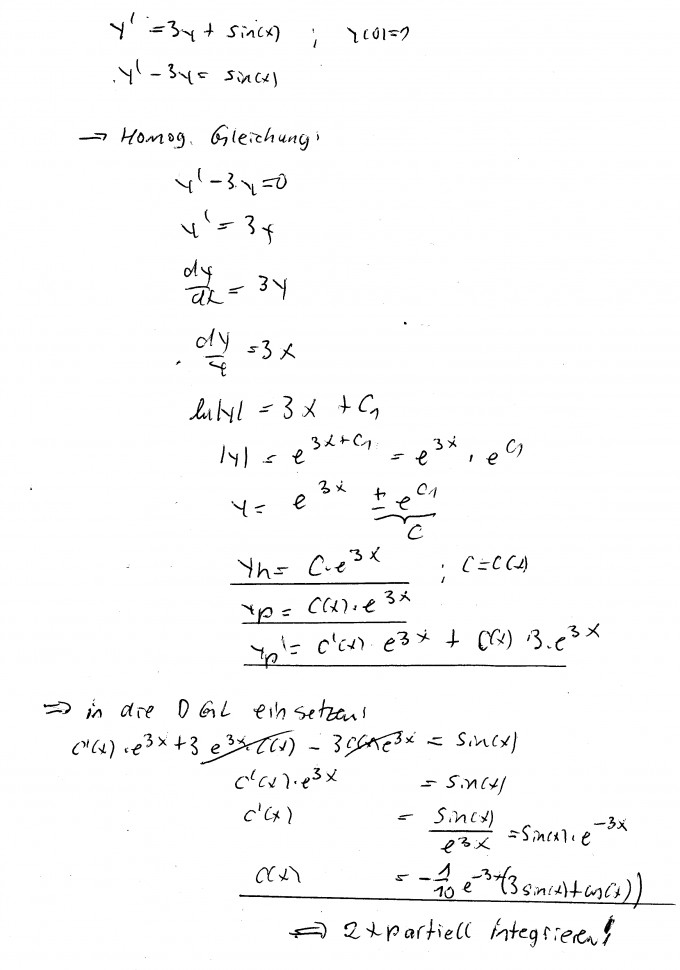 y' = 3y + sin(x) ; y(0)=1
y' - 3y = sin(x)
⇒ Homog. Gleichung:
y' - 3y = 0
y' = 3y
dy/dx = 3y
dy/y = 3x
ln|y| = 3x + C₁
|y| = e^(3x+C₁) = e^(3x) · e^(C₁)
y = e^(3x) ± e^(C₁)
C
yh = C·e^(3x) ; C = C(x)
yp = C(x)·e^(3x)
yp' = C'(x) · e^(3x) + C(x) · 3·e^(3x)
⇒ in die DGL einsetzen:
C'(x)·e^(3x) + 3 e^(3x) · C(x) - 3C(x)e^(3x) = sin(x)
C'(x)·e^(3x) = sin(x)
C'(x) = sin(x)/e^(3x) = sin(x)·e^(-3x)
C(x) = -1/10 e^(-3x)(3 sin(x) + cos(x))
⇒ 2x partiell integrieren!